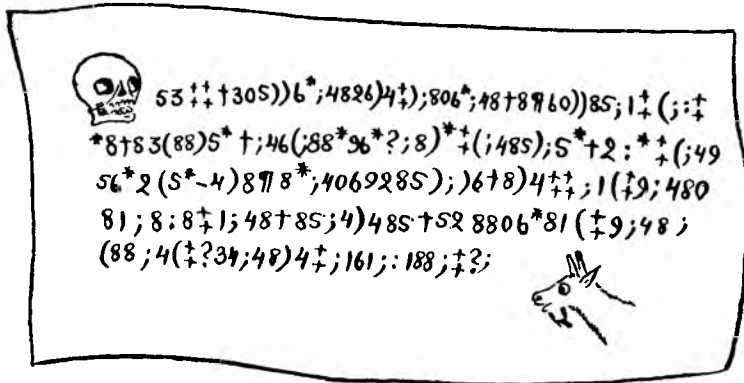 53‡‡†305))6*;4826)4‡);806*;48†8¶60))85;1‡(;:‡
*8†83(88)5*†;46(;88*96*?;8)*‡(;485);5*†2:*‡(;49
56*2(5*-4)8¶8*;4069285);)6†8)4‡‡;1(‡9;480
81;8:8‡1;48†85;4)485†528806*81(‡9;48;
(88;4(‡?34;48)4‡;161;:188;‡?;